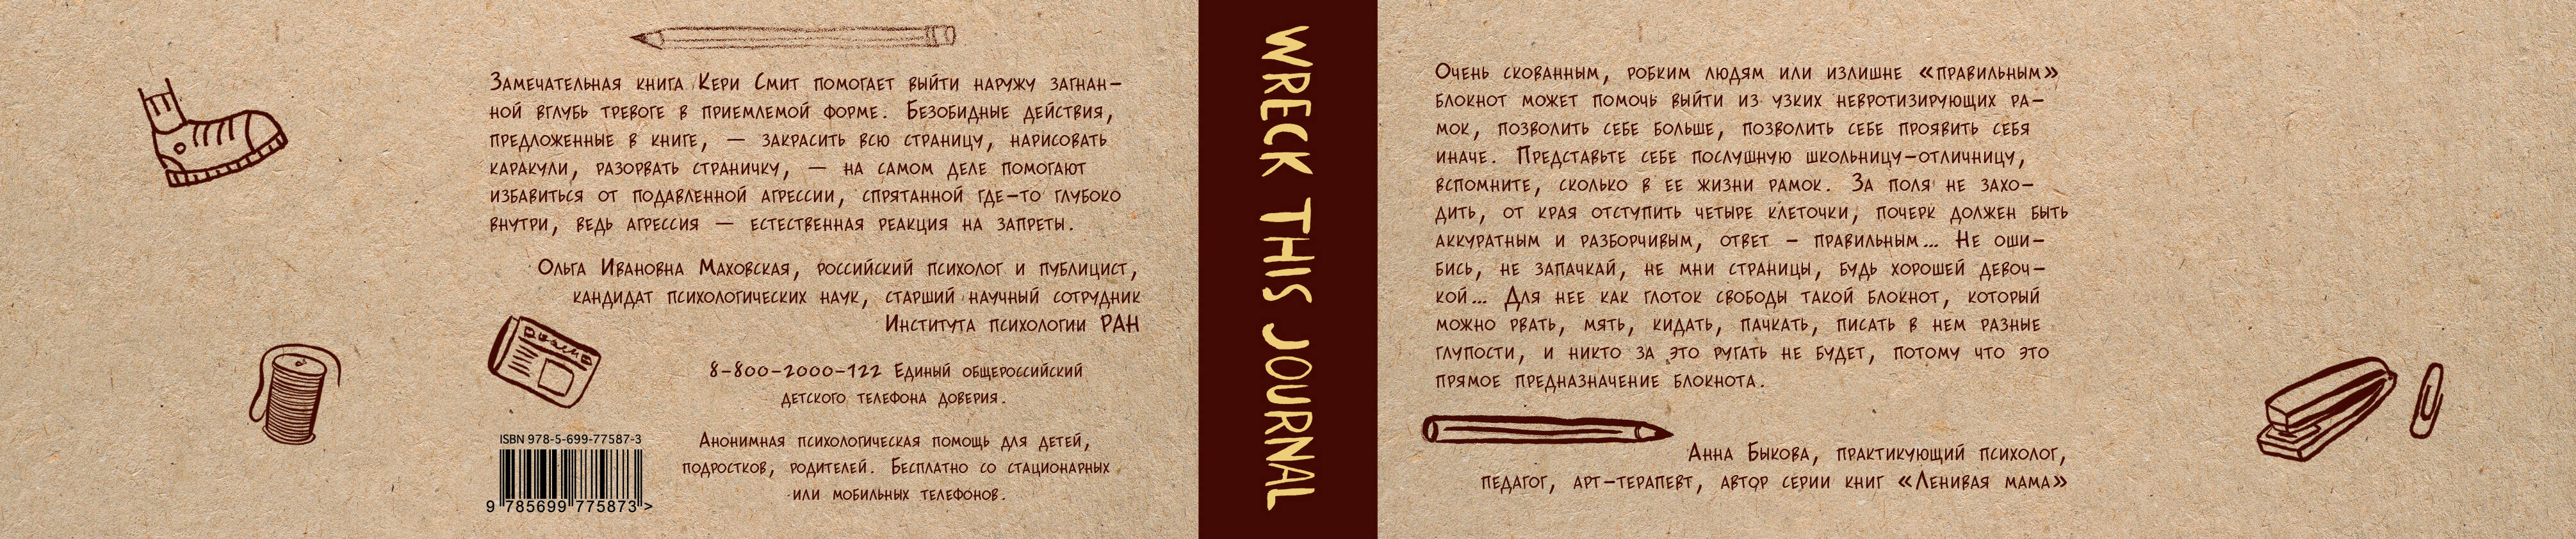 Замечательная книга Кери Смит помогает выйти наружу загнан-
ной вглубь тревоге в приемлемой форме. Безобидные действия,
предложенные в книге, — закрасить всю страницу, нарисовать
каракули, разорвать страничку, — на самом деле помогают
избавиться от подавленной агрессии, спрятанной где-то глубоко
внутри, ведь агрессия — естественная реакция на запреты.
Ольга Ивановна Маховская, российский психолог и публицист,
кандидат психологических наук, старший научный сотрудник
Института психологии РАН
8-800-2000-122 Единый общероссийский
детского телефона доверия.
Анонимная психологическая помощь для детей,
подростков, родителей. Бесплатно со стационарных
или мобильных телефонов.
ISBN 978-5-699-77587-3
9 785699 775873 >
WRECK THIS JOURNAL
Очень скованным, робким людям или излишне «правильным»
блокнот может помочь выйти из узких невротизирующих ра-
мок, позволить себе больше, позволить себе проявить себя
иначе. Представьте себе послушную школьницу-отличницу,
вспомните, сколько в ее жизни рамок. За поля не захо-
дить, от края отступить четыре клеточки, почерк должен быть
аккуратным и разборчивым, ответ – правильным... Не оши-
бись, не запачкай, не мни страницы, будь хорошей девоч-
кой... Для нее как глоток свободы такой блокнот, который
можно рвать, мять, кидать, пачкать, писать в нем разные
глупости, и никто за это ругать не будет, потому что это
прямое предназначение блокнота.
Анна Быкова, практикующий психолог,
педагог, арт-терапевт, автор серии книг «Ленивая мама»